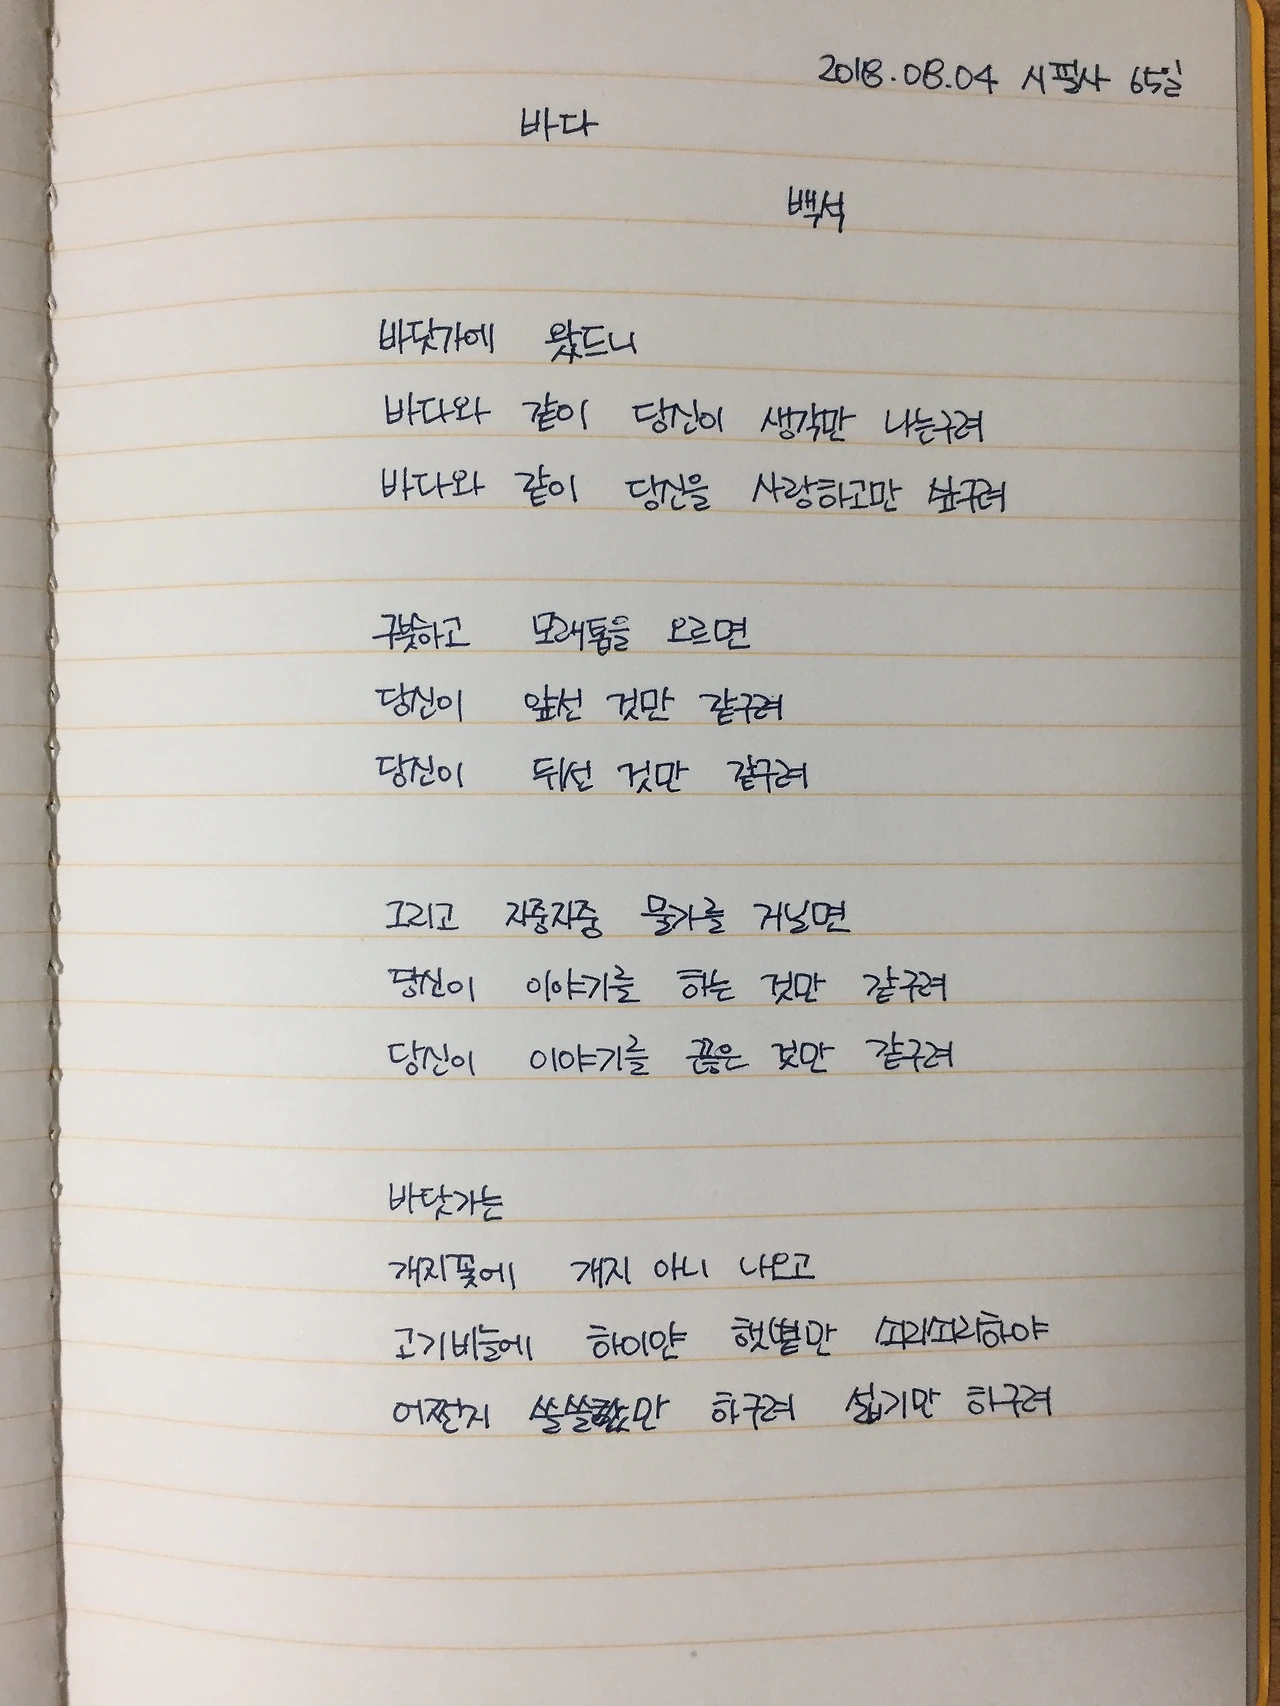 2018.08.04 시필사 65일
바다
백석
바닷가에 왔드니
바다와 같이 당신이 생각만 나는구려
바다와 같이 당신을 사랑하고만 싶구려
구붓하고 모래톱을 오르면
당신이 앞선 것만 같구려
당신이 뒤선 것만 같구려
그리고 지중지중 물가를 거닐면
당신이 이야기를 하는 것만 같구려
당신이 이야기를 끊은 것만 같구려
바닷가는
개지꽃에 개지 아니 나오고
고기비늘에 하이얀 햇볕만 쇠리쇠리하야
어쩐지 쓸쓸만 하구려 섧기만 하구려